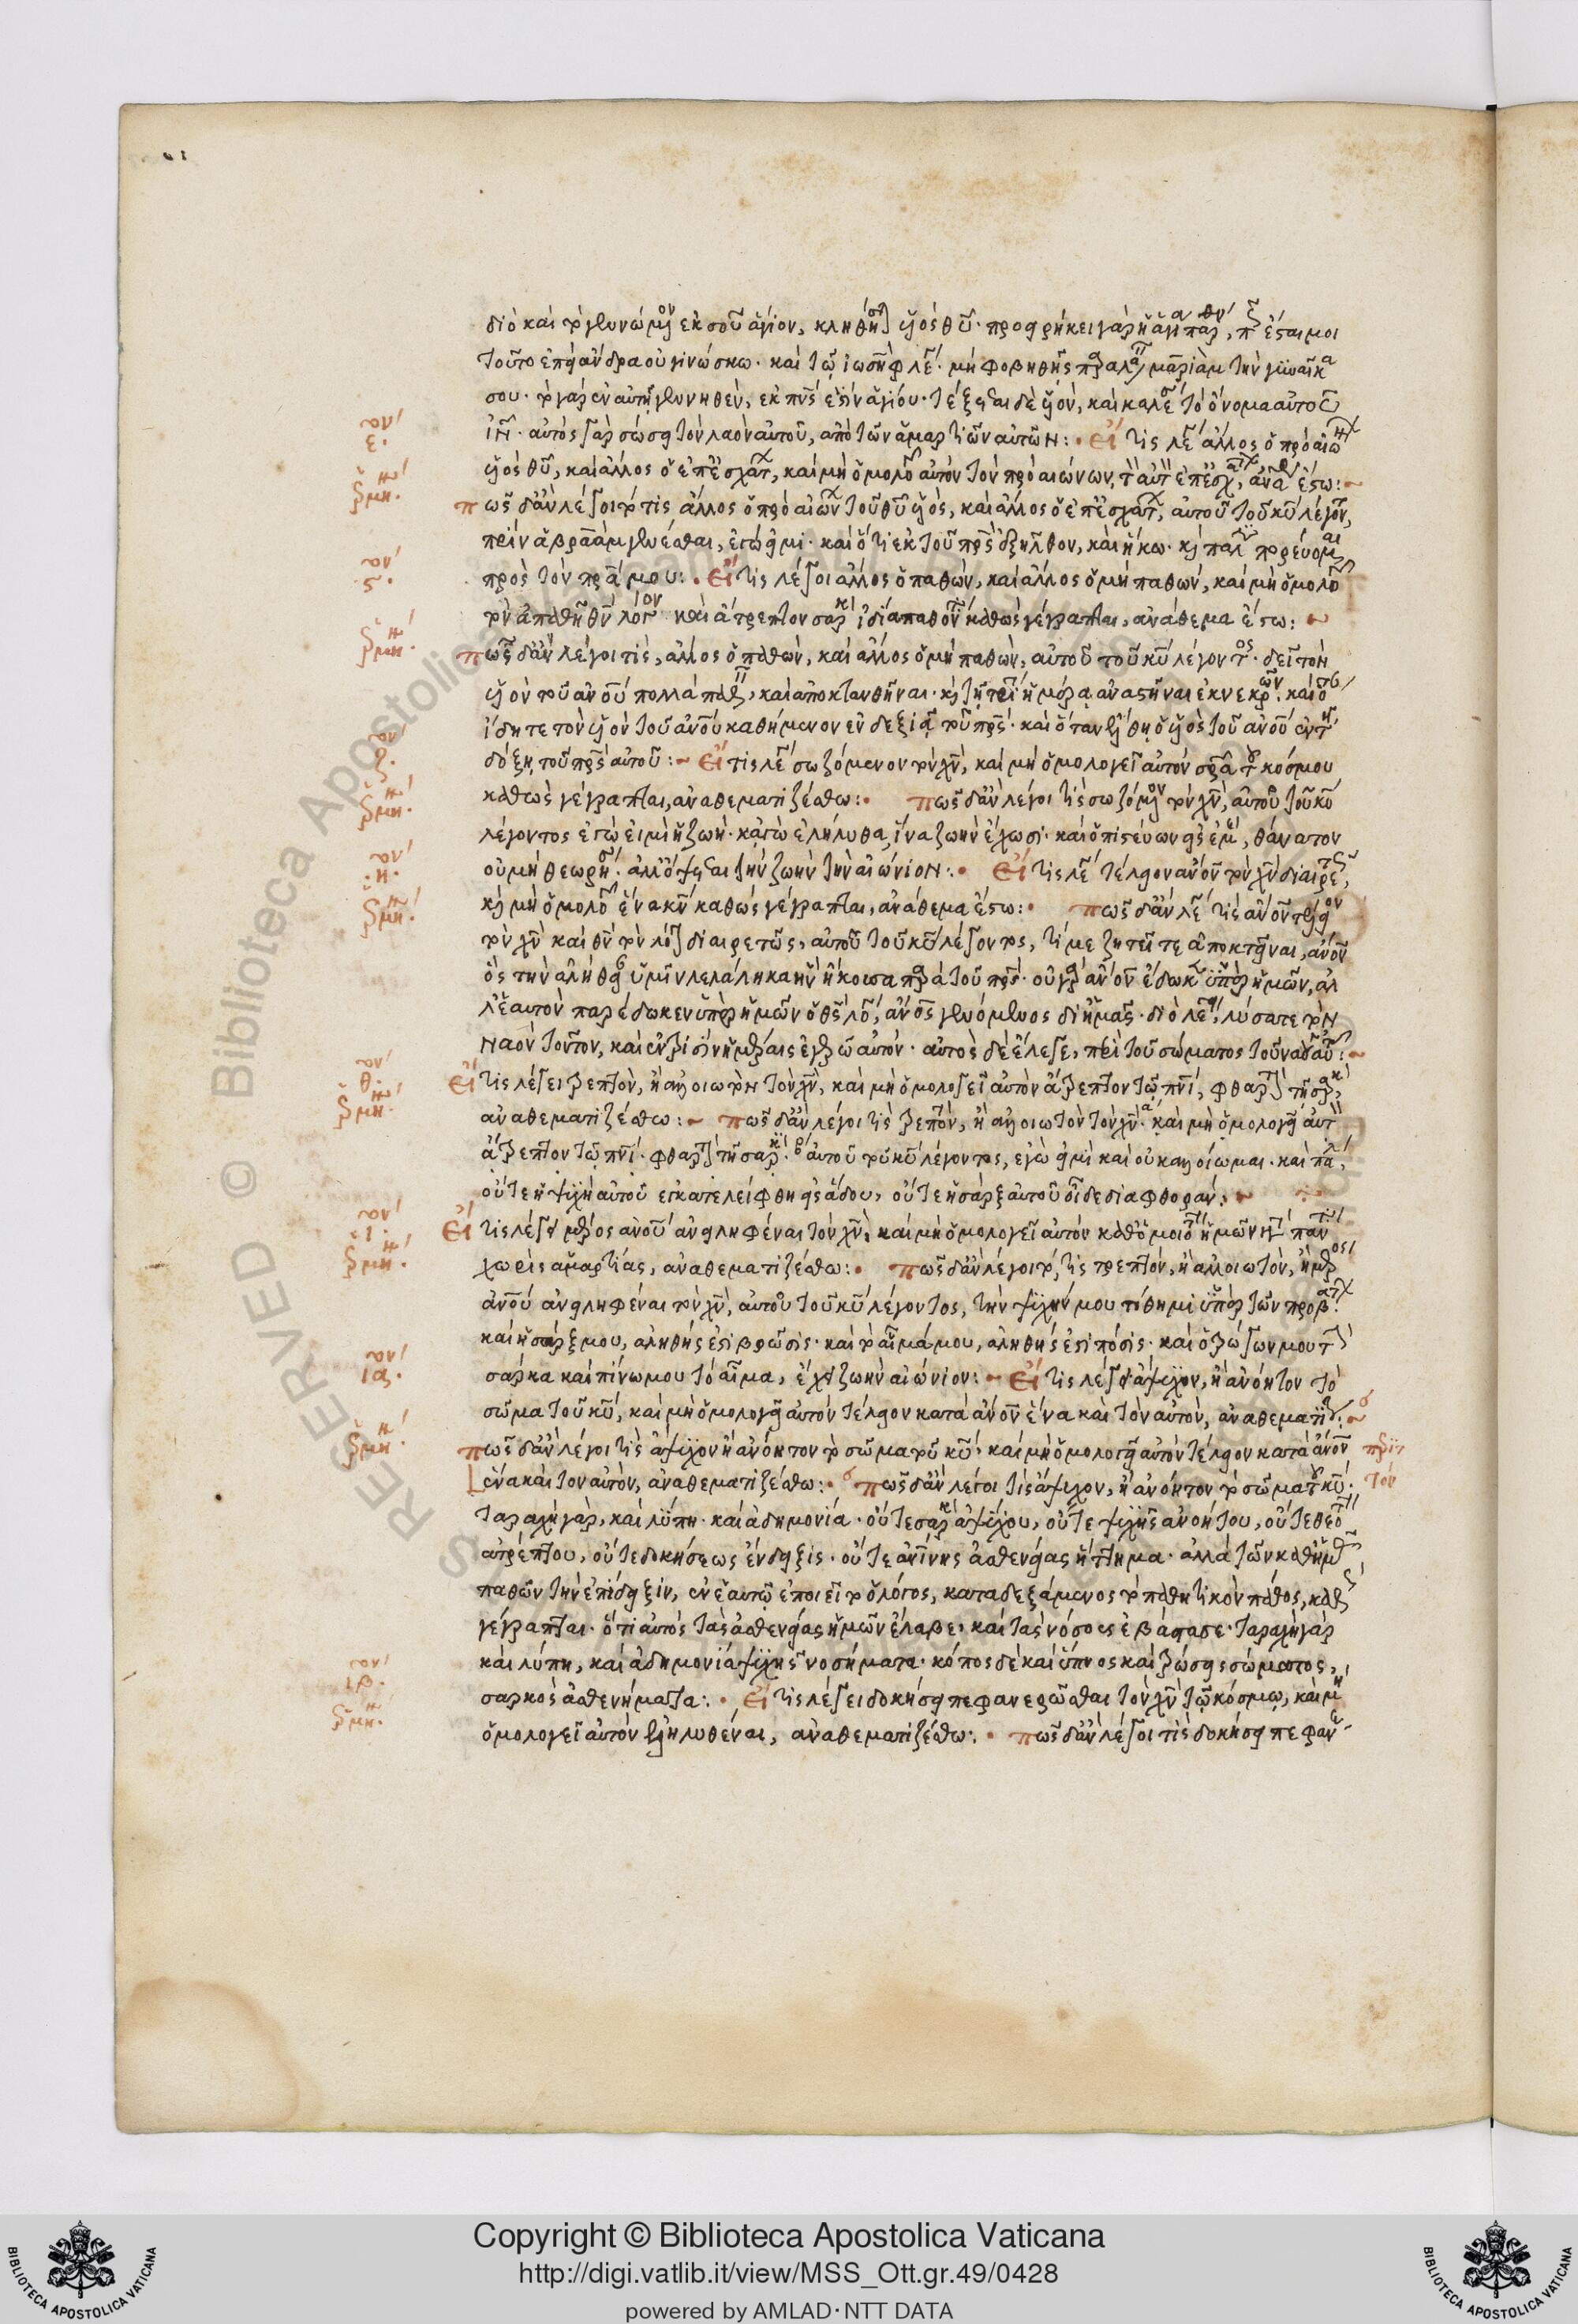 διὸ καὶ τὸ γεννώμενον ἐκ σοῦ ἅγιον, κληθήσεται υἱὸς θῦ· προειρήκει γὰρ ἡ ἁγία παρθένος, πῶς ἔσται μοι
τοῦτο ἐπεὶ ἄνδρα οὐ γινώσκω· καὶ τῷ ἰωσὴφ λέγει· μὴ φοβηθῇς παραλαβεῖν μαριὰμ τὴν γυναῖκα
σου· τὸ γὰρ ἐν αὐτῇ γεννηθὲν, ἐκ πνς ἐστὶν ἁγίου· τέξεται δὲ υἱὸν, καὶ καλέσεις τὸ ὄνομα αὐτοῦ
ιν· αὐτὸς γὰρ σώσει τὸν λαὸν αὐτοῦ, ἀπὸ τῶν ἁμαρτιῶν αὐτῶν: · Εἴ τις λέγει ἄλλος ὁ πρὸ αἰώνων
υἱὸς θῦ, καὶ ἄλλος ὁ ἐπ' ἐσχάτων, καὶ μὴ ὁμολογεῖ αὐτὸν τὸν πρὸ αἰώνων, τὸν αὐτὸν ἐπ' ἐσχάτων, ἀνάθεμα ἔστω:
πῶς δ' ἂν λέγοιτό τις ἄλλος ὁ πρὸ αἰώνων τοῦ θῦ υἱὸς, καὶ ἄλλος ὁ ἐπ' ἐσχάτων, αὐτοῦ τοῦ κῦ λέγοντος,
πρὶν ἀβραὰμ γενέσθαι, ἐγώ εἰμι· καὶ ὅτι ἐκ τοῦ πρς ἐξῆλθον, καὶ ἥκω· καὶ πάλιν πορεύομαι
πρὸς τὸν πρα μου: · Εἴ τις λέγοι ἄλλος ὁ παθὼν, καὶ ἄλλος ὁ μὴ παθὼν, καὶ μὴ ὁμολογεῖ
τὸν ἀπαθῆ θν λόγον καὶ ἄτρεπτον σαρκὶ ἰδίᾳ παθόντα καθὼς γέγραπται, ἀνάθεμα ἔστω:
πῶς δ' ἂν λέγοι τὶς, ἄλλος ὁ παθὼν, καὶ ἄλλος ὁ μὴ παθὼν, αὐτοῦ τοῦ κῦ λέγοντος· δεῖ τὸν
υἱὸν τοῦ ανου πολλὰ παθεῖν, καὶ ἀποκτανθῆναι· καὶ τῇ τρίτῃ ἡμέρᾳ ἀναστῆναι ἐκ νεκρῶν· καὶ ὅταν
ἴδητε τὸν υἱὸν τοῦ ανου καθήμενον ἐν δεξιᾷ τοῦ πρς· καὶ ὅταν ἔλθῃ ὁ υἱὸς τοῦ ανου ἐν τῇ
δόξῃ τοῦ πρς αὐτοῦ: Εἴ τις λέγει σωζόμενον τὸν χν, καὶ μὴ ὁμολογεῖ αὐτὸν σρα τοῦ κόσμου
καθὼς γέγραπται, ἀναθεματιζέσθω: · πῶς δ' ἂν λέγοι τὶς σωζόμενον τὸν χν, αὐτοῦ τοῦ κῦ
λέγοντος ἐγὼ εἰμὶ ἡ ζωή· κἀγὼ ἐλήλυθα, ἵνα ζωὴν ἔχωσι· καὶ ὁ πιστεύων εἰς ἐμὲ, θάνατον
οὐ μὴ θεωρήσει· ἀλλ' ὄψεται τὴν ζωὴν τὴν αἰώνιον: · Εἴ τις λέγει τέλειον ανον τὸν χν διαιρετῶς,
καὶ μὴ ὁμολογεῖ ἕνα κν καθὼς γέγραπται, ἀνάθεμα ἔστω: · πῶς δ' ἂν λέγει τὶς ανον τέλειον
τὸν χν καὶ θν τὸν λόγον διαιρετῶς, αὐτοῦ τοῦ κῦ λέγοντος, τί με ζητεῖτε ἀποκτεῖναι, ανον
ὃς τὴν ἀλήθειαν ὑμῖν λελάληκα ἣν ἤκουσα παρὰ τοῦ πρς· οὐ γὰρ ανον ἔδωκεν ὑπὲρ ἡμῶν, ἀλ
λ' ἑαυτὸν παρέδωκεν ὑπὲρ ἡμῶν ὁ θς λόγος, ανος γενόμενος δι' ἡμᾶς· διὸ λέγει, λύσατε τὸν
ναὸν τοῦτον, καὶ ἐν τρισὶν ἡμέραις ἐγερῶ αὐτόν· αὐτὸς δὲ ἔλεγε, περὶ τοῦ σώματος τοῦ ναοῦ αὐτοῦ:
Εἴ τις λέγει τρεπτὸν, ἢ ἀλλοιωτὸν τὸν χν, καὶ μὴ ὁμολογεῖ αὐτὸν ἄτρεπτον τῷ πνι, φθαρτὸν τῇ σαρκί,
ἀναθεματιζέσθω: πῶς δ' ἂν λέγοι τὶς τρεπτὸν, ἢ ἀλλοιωτὸν τὸν χν· καὶ μὴ ὁμολογεῖ αὐτὸν
ἄτρεπτον τῷ πνι· φθαρτὸν τῇ σαρκί· αὐτοῦ τοῦ κῦ λέγοντος, ἐγὼ εἰμὶ καὶ οὐκ ἀλλοίωμαι· καὶ πάλιν,
οὔτε ἡ ψυχὴ αὐτοῦ ἐγκατελείφθη εἰς ἅδου, οὔτε ἡ σὰρξ αὐτοῦ οἶδε διαφθοράν:
Εἴ τις λέγει μέρος ανου ἀνειληφέναι τὸν χν, καὶ μὴ ὁμολογεῖ αὐτὸν καθ' ὁμοιότητα ἡμῶν κατὰ πάντα
χωρὶς ἁμαρτίας, ἀναθεματιζέσθω: · πῶς δ' ἂν λέγοιτό τις τρεπτὸν, ἢ ἀλλοιωτὸν, ἢ μέρος
ανου ἀνειληφέναι τὸν χν, αὐτοῦ τοῦ κῦ λέγοντος, τὴν ψυχήν μου τίθημι ὑπὲρ τῶν προβάτων·
καὶ ἡ σάρξ μου, ἀληθής ἐστι βρῶσις· καὶ τὸ αἷμά μου, ἀληθής ἐστι πόσις· καὶ ὁ τρώγων μου τὴν
σάρκα καὶ πίνων μου τὸ αἷμα, ἔχει ζωὴν αἰώνιον: Εἴ τις λέγει ἄψυχον, ἢ ἀνόητον τὸ
σῶμα τοῦ κῦ, καὶ μὴ ὁμολογεῖ αὐτὸν τέλειον κατὰ ανον ἕνα καὶ τὸν αὐτὸν, ἀναθεματιζέσθω:
πῶς δ' ἂν λέγοι τὶς ἄψυχον ἢ ἀνόητον τὸ σῶμα τοῦ κῦ· καὶ μὴ ὁμολογεῖ αὐτὸν τέλειον κατὰ ανον
ἕνα καὶ τὸν αὐτὸν, ἀναθεματιζέσθω: · πῶς δ' ἂν λέγοι τὶς ἄψυχον, ἢ ἀνόητον τὸ σῶμα τοῦ κῦ·
ταραχὴ γὰρ, καὶ λύπη· καὶ ἀδημονία· οὔτε σαρκὸς ἀψύχου, οὔτε ψυχῆς ἀνοήτου, οὔτε θεότητος
ἀτρέπτου, οὔτε δοκήσεως ἔνδειξις· οὔτε ἀνῖνης ἀσθενείας ἥττημα· ἀλλὰ τῶν καθ' ἡμᾶς
παθῶν τὴν ἐπίδειξιν, ἐν ἑαυτῷ ἐποιεῖτο ὁ λόγος, καταδεξάμενος τὸ παθητικὸν πάθος, καθὼς
γέγραπται· ὅτι αὐτὸς τὰς ἀσθενείας ἡμῶν ἔλαβε· καὶ τὰς νόσους ἐβάστασε· ταραχὴ γὰρ
καὶ λύπη, καὶ ἀδημονία ψυχῆς νοσήματα· κόπος δὲ καὶ ὕπνος καὶ τρώσεις σώματος,
σαρκὸς ἀσθενήματα: · Εἴ τις λέγει δοκήσει πεφανερῶσθαι τὸν χν τῷ κόσμῳ, καὶ μὴ
ὁμολογεῖ αὐτὸν ἐληλυθέναι, ἀναθεματιζέσθω: · πῶς δ' ἂν λέγοι τὶς δοκήσει πεφανε
Copyright © Biblioteca Apostolica Vaticana
http://digi.vatlib.it/view/MSS_Ott.gr.49/0428
powered by AMLAD·NTT DATA